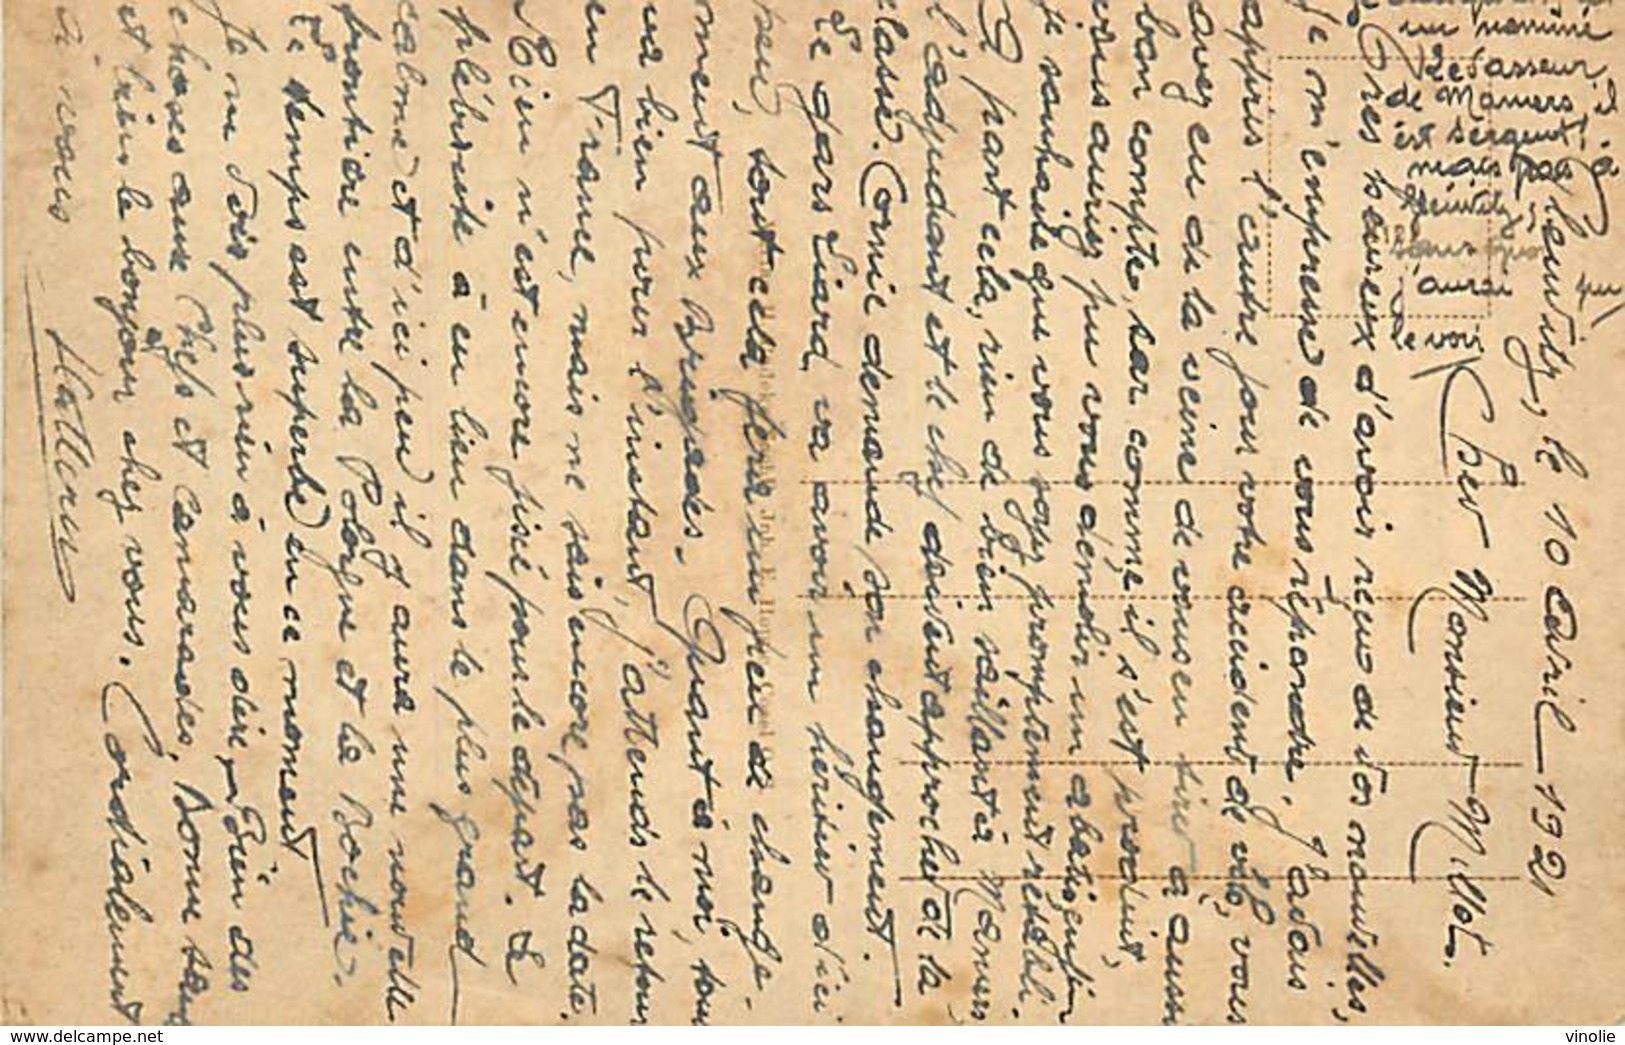 Gleiwitz, le 10 Avril 1921
Cher Monsieur Millot.
Très heureux d'avoir reçu de vos nouvelles,
je m'empresse de vous répondre. J'avais
appris l'autre jour votre accident de vélo, vous
avez eu de la veine de vous en tirer à aussi
bon compte, car comme il s'est produit,
vous auriez pu vous démolir un abatis, enfin
je souhaite que vous soyez promptement rétabli.
A part cela, rien de bien saillant à Mamers
l'adjudant et le chef doivent approcher de la
classe. Cornic demande son changement.
Le gars Liard va avoir un héritier d'ici
peu, tout cela fera un peu de change-
ment aux Brigades. Quant à moi, tout
va bien pour l'instant, j'attends le retour
en France, mais ne sais encore pas la date.
Rien n'est encore fixé pour le départ. Le
plébiscite a eu lieu dans le plus grand
calme et d'ici peu il y aura une nouvelle
frontière entre la Pologne et la Bochie.
Le temps est superbe en ce moment
Je ne vois plus rien à vous dire, Bien des
choses aux Chefs et Camarades, Bonne santé
et bien le bonjour chez vous. Cordialement
à vous
un nommé
Levasseur
de Mamers, il
est sergent
mais pas à
Gleiwitz,
sans quoi
j'aurai pu
le voir
vinolie